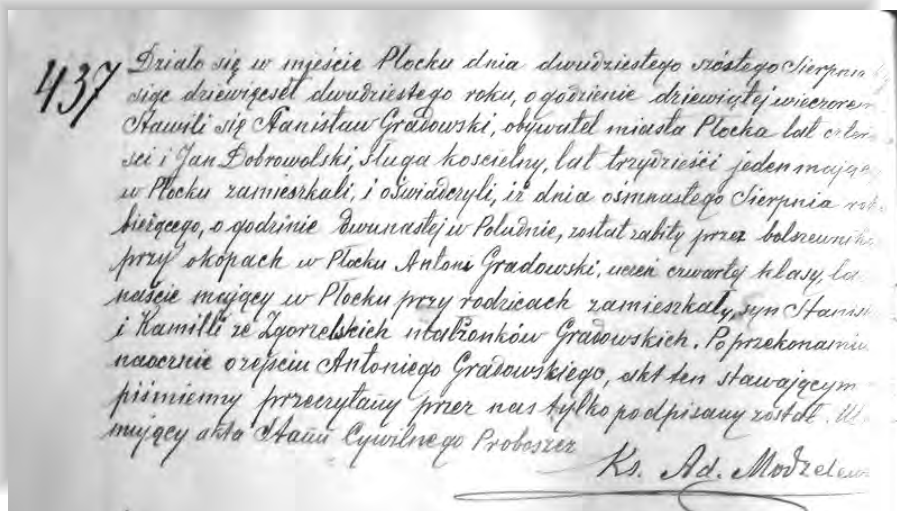 437
Działo się w mieście Płocku dnia dwudziestego szóstego Sierpnia
siąc dziewięćset dwudziestego roku, o godzienie dziewiątej wieczorem
Stawili się Stanisław Gradowski, obywatel miasta Płocka lat czter
ści i Jan Dobrowolski, sługa kościelny, lat trzydzieści jeden mając
w Płocku zamieszkali, i oświadczyli, iż dnia ośmnastego Sierpnia rok
bieżącego, o godzinie dwunastej w Południe, został zabity przez bolszewnik
przy okopach w Płocku Antoni Gradowski, uczeń czwartej klasy, la
naście mający w Płocku przy rodzicach zamieszkały, syn Stanis
i Kamilli ze Zgorzelskich małżonków Gradowskich. Po przekonaniu
naocznie o zejściu Antoniego Gradowskiego, akt ten stawającym
piśmienny przeczytany przez nas tylko podpisany został.
mujący akta Stanu Cywilnego Proboszcz
Ks. Ad. Modzelew